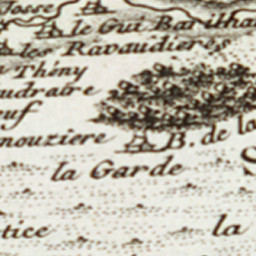 Josse
le Gui Barilha
les Ravaudieres
Thény
udraire
uf
nouziere
B. de la
la Garde
S
tice
la